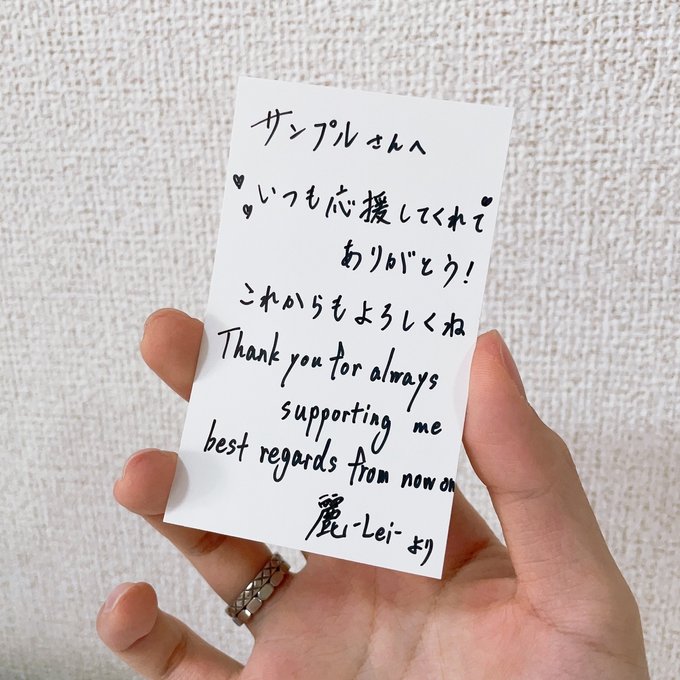 サンプルさんへ
いつも応援してくれて
ありがとう!
これからもよろしくね
Thank you for always
supporting me
best regards from now on
麗-Lei-より